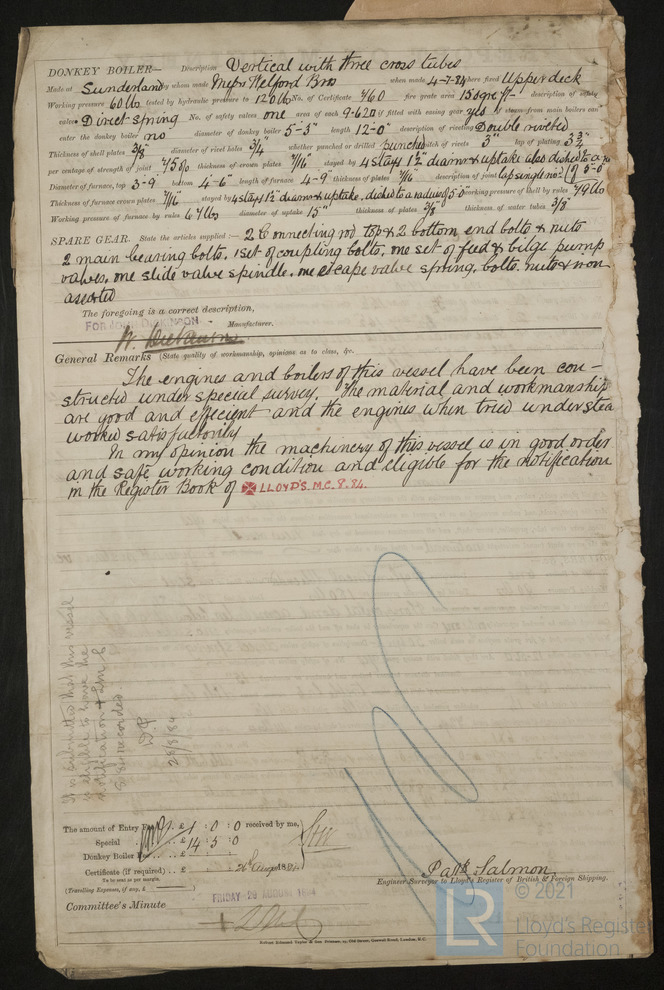 DONKEY BOILER— Description Vertical with three cross tubes
Made at Sunderland by whom made Messrs Welford Bros when made 4-7-84 where fixed Upper deck
Working pressure 60 lbs tested by hydraulic pressure to 120 lbs No. of Certificate 760 fire grate area 15 sqre ft description of safety
valves Direct spring No. of safety valves one area of each 9.620 if fitted with easing gear yes if steam from main boilers can
enter the donkey boiler no diameter of donkey boiler 5-3" length 12-0" description of riveting Double riveted
Thickness of shell plates 3/8 diameter of rivet holes 3/4 whether punched or drilled punched pitch of rivets 3" lap of plating 3 3/4
per centage of strength of joint 75% thickness of crown plates 7/16 stayed by 4 stays 1 1/2 diam & uptake also dished to a
Diameter of furnace, top 3-9 bottom 4-6" length of furnace 4-9" thickness of plates 7/16 description of joint lap single
Thickness of furnace crown plates 7/16 stayed by 4 stays 1 1/2 diam & uptake. dished to a radius of 5-0 working pressure of shell by rules 79 lbs
Working pressure of furnace by rules 67 lbs diameter of uptake 15" thickness of plates 3/8 thickness of water tubes 3/8"
SPARE GEAR. State the articles supplied:— 2 Connecting rod top & 2 bottom end bolts & nuts
2 main bearing bolts, 1 set of coupling bolts, one set of feed & bilge pump
valves, one slide valve spindle, one escape valve spring, bolts nuts & iron
assorted
The foregoing is a correct description,
FOR JOHN DICKINSON Manufacturer.
W. Dickinson
General Remarks (State quality of workmanship, opinions as to class, &c.
The engines and boilers of this vessel have been con-
structed under special survey. The material and workmanship
are good and efficient and the engines when tried under stea
worked satisfactorily
In my opinion the machinery of this vessel is in good order
and safe working condition and eligible for the notification
in the Register Book of LLOYD'S. M.C. 8.84.
It is submitted that this vessel
is eligible to have the
notification LMC
8.84 recorded
28/8/84
The amount of Entry Fee .. £ 1 : 0 : 0 received by me,
Special .. £ 14 : 5 : 0
Donkey Boiler Fee .. £
Certificate (if required) .. £ 26 Augst 1884
To be sent as per margin.
(Travelling Expenses, if any, £ )
Patk Salmon
Engineer Surveyor to Lloyd's Register of British & Foreign Shipping.
Committee's Minute FRIDAY 29 AUGUST 1884
LR
© 2021
Lloyd's Register
Foundation